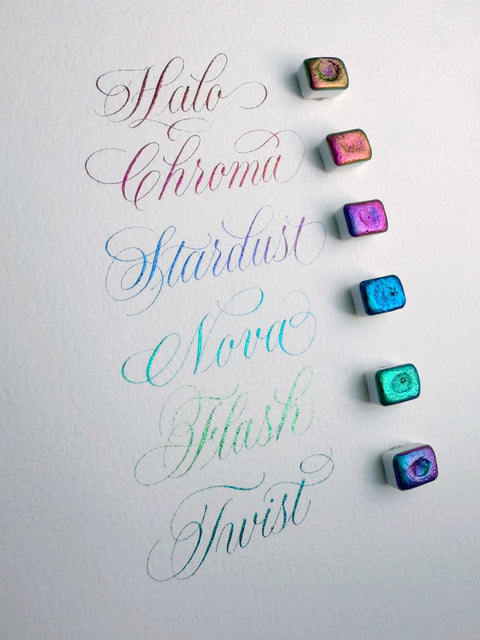 Halo
Chroma
Stardust
Nova
Flash
Twist